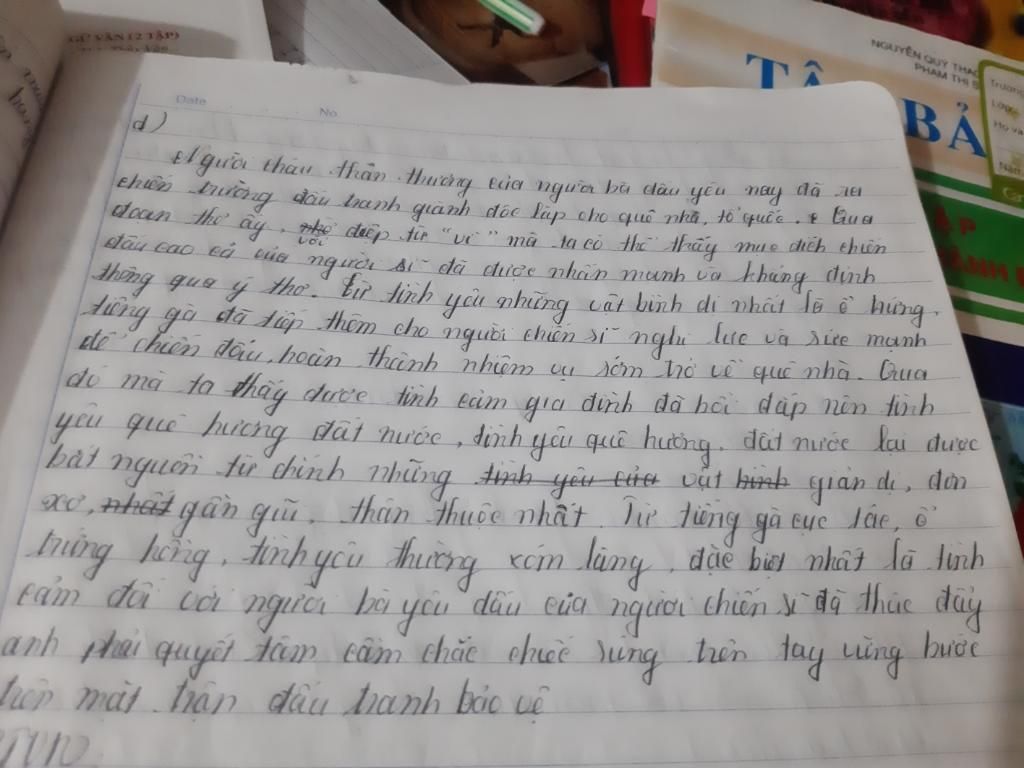 GỮ VĂN (2 TẬP)
NGUYỄN QUÝ THAO
PHẠM THỊ
TẬ BẢ
Trường
Lớp
Họ và
Năm
Date No.
d)
Người cháu thân thương của người bà dấu yêu nay đã ra
chiến trường đấu tranh giành độc lập cho quê nhà, tổ quốc. Qua
đoạn thơ ấy, với điệp từ "vì" mà ta có thể thấy mục đích chiến
đấu cao cả của người sĩ đã được nhấn mạnh và khẳng định
thông qua ý thơ. Từ tình yêu những vật bình dị nhất là ổ trứng,
tiếng gà đã tiếp thêm cho người chiến sĩ nghị lực và sức mạnh
để chiến đấu, hoàn thành nhiệm vụ sớm trở về quê nhà. Qua
đó mà ta thấy được tình cảm gia đình đã bồi đắp nên tình
yêu quê hương đất nước, tình yêu quê hương, đất nước lại được
bắt nguồn từ chính những tình yêu của vật bình giản dị, đơn
sơ, nhất gần gũi, thân thuộc nhất. Từ tiếng gà cục tác, ổ
trứng hồng, tình yêu thương xóm làng, đặc biệt nhất là tình
cảm đối với người bà yêu dấu của người chiến sĩ đã thúc đẩy
anh phải quyết tâm cầm chắc chiếc súng trên tay vững bước
trên mặt trận đấu tranh bảo vệ